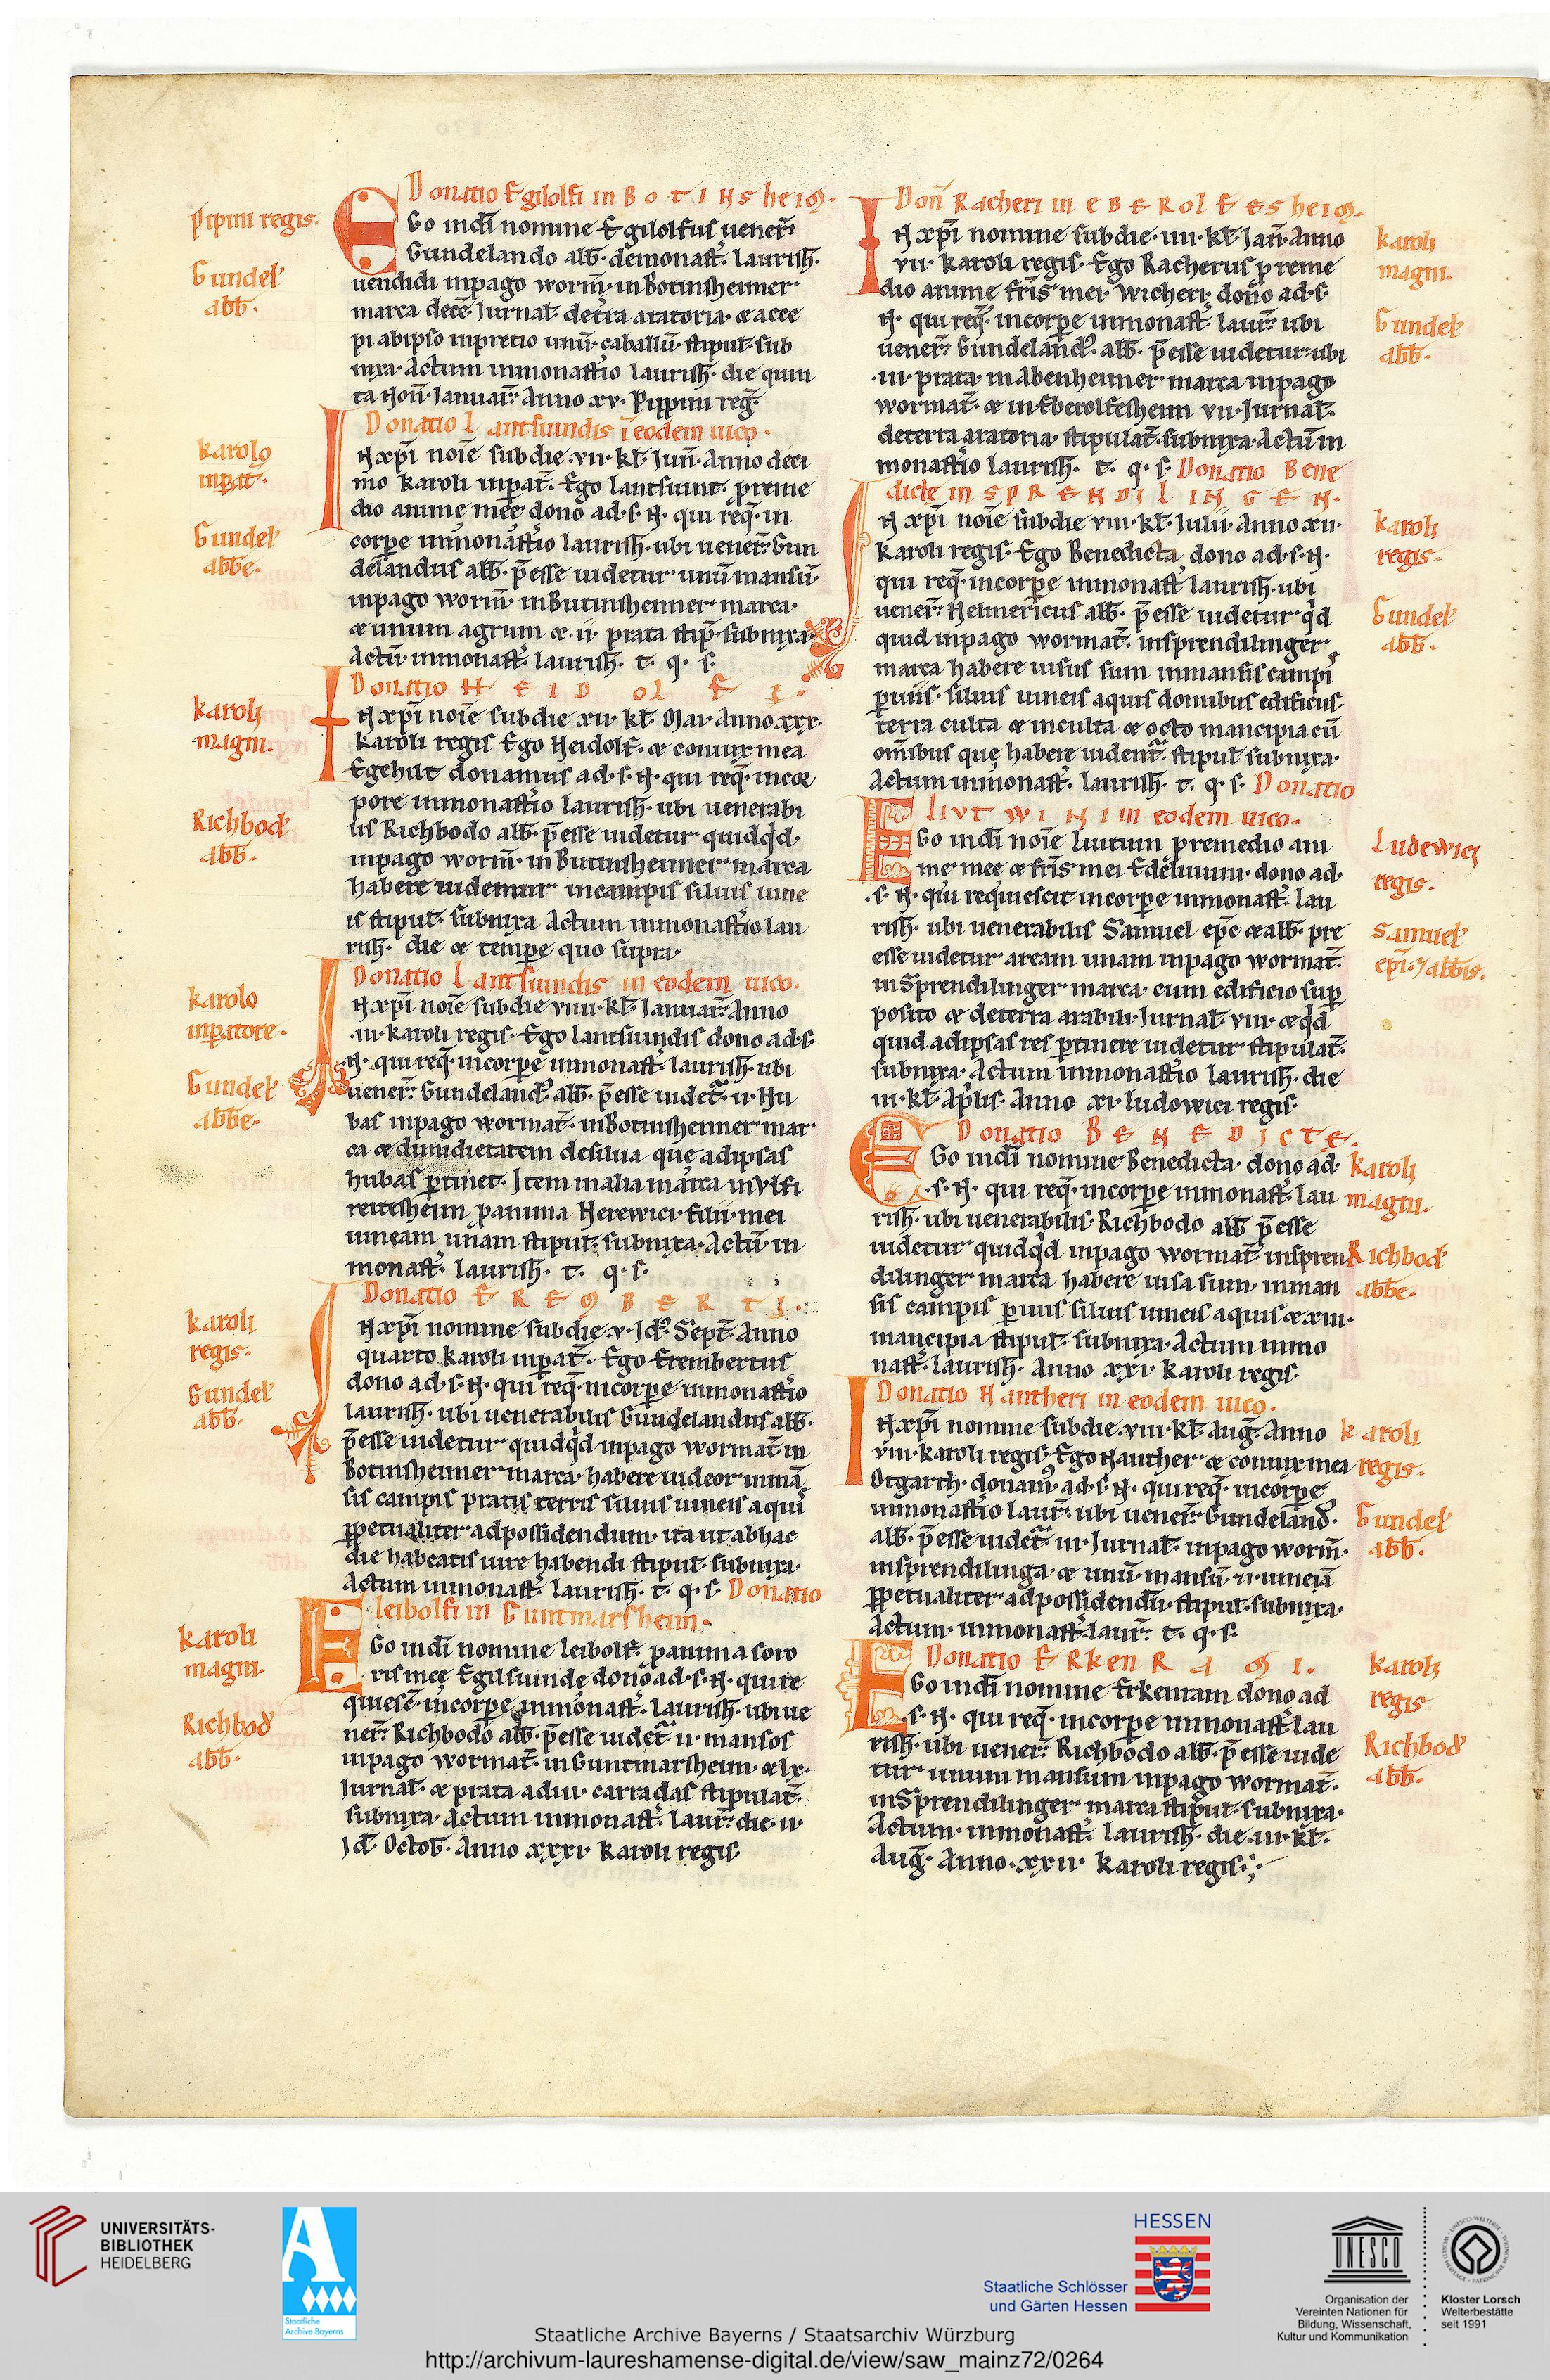 Donatio Egilolfi in Botinsheim.
Ego in dī nomine Egilolfus uener̄
Gundelando abb̄. de monast̄. laurish̄.
uendidi in pago worm̄. in Botinsheimer
marca decē Jurnal̄. de tr̄ra aratoria. & acce
pi ab ipso in precio unū. caballū. stipul̄. sub
nixa. Actum in monast̄io laurish̄. die quin
ta Non̄. Januar̄. Anno xv. Pippini reḡ.
Pipini regis.
Gundel̄
abb̄.
Donatio Lantsuindis ī eodem uico.
IN xp̄i noīe sub die. vii. kl̄. Jun̄. Anno deci
mo karoli inp̄at̄. Ego lantsuint. p̄ reme
dio anime meę dono ad. s. N. qui req̄. in
corp̄e in monast̄io laurish̄. ubi uener̄. Gun
delandus abb̄. p̄esse uidetur unū mansū.
in pago worm̄. in Butinsheimer marca.
& unum agrum &. ii. prata stip̄. subnixa.
Actū. in monast̄. laurish̄. t. q. s.
karolo
inp̄at̄.
Gundel̄
abbe.
Donatio HEIDolFI.
IN xp̄i noīe sub die xii. kl̄. Mai. Anno xxx.
karoli regis Ego Heidolf. & coniux mea
Egehilt donamus ad. s. N. qui req̄. in cor
pore in monast̄io laurish̄. ubi uenerabi
lis Richbodo abb̄. p̄esse uidetur quidq̄d.
in pago worm̄. in Butinsheimer marca
habere uidemur in campis siluis uine
is stipul̄. subnixa Actum in monast̄io lau
rish̄. die & temp̄e quo supra.
karoli
magni.
Richbod̄
abb̄.
Donatio Lantsuindis in eodem uico.
IN xp̄i noīe sub die viiii. kl̄. Januar̄. Anno
.iii. karoli regis. Ego lantsuindis dono ad. s.
N. qui req̄. in corp̄e in monast̄. laurish̄. ubi
uener̄. Gundeland᷒. abb̄. p̄esse uidet̄. ii. Hu
bas in pago wormat̄. in Botinsheimer mar
ca & dimidietatem de silua que ad ipsas
hubas p̄tinet. Item in alia marca in vlfi
reitesheim p̄ anima Herewici. filii. mei
uineam unam stipul̄. subnixa. Actū. in
monast̄. laurish̄. t. q. s.
karolo
inp̄atore.
Gundel̄
abbe.
Donatio EREMBERTI.
IN xp̄i nomine sub die. v. Jd᷒. Sept̄. Anno
quarto karoli inp̄at̄. Ego Erembertus
dono ad. s. N. qui req̄. in corp̄e in monast̄io
laurish̄. ubi uenerabilis Gundelandus abb̄.
p̄esse uidetur quidq̄d in pago wormat̄. in
Botinsheimer marca. habere uideor in mā
sis campis pratis terris siluis uineis aquis
p̄petualiter ad possidendum. ita ut ab hac
die habeatis iure habendi stipul̄. subnixa.
Actum in monast̄. laurish̄. t. q. s. Donatio
karoli
regis.
Gundel̄
abb̄.
leibolfi in Guntmarsheim.
Ego in dī nomine leibolf. p̄ anima soro
ris meę Egilsuinde dono ad. s. N. qui re
quiesc̄. in corp̄e in monast̄. laurish̄. ubi ue
ner̄. Richbodo abb̄. p̄esse uidet̄. ii. mansos
in pago wormat̄. in Guntmarsheim. & lx.
Jurnal̄. & prata ad iii. carradas stipulat̄.
subnixa. Actum in monast̄. laur̄. die. ii.
Jd̄. Octob̄. Anno xxxi. karoli regis.
karoli
magni.
Richbod̄
abb̄.
Don̄ Racheri in EBERolFEsheim.
IN xp̄i nomine sub die. iiii. kl̄. Jan̄. Anno
vii. karoli regis. Ego Racherus p̄ reme
dio anime fr̄is mei Wicheri. dono ad. s.
N. qui req̄. in corp̄e in monast̄. laur̄. ubi
uener̄. Gundeland᷒. abb̄. p̄esse uidetur. ubi
.iii. prata. in Abenheimer marca in pago
wormat̄. & in Eberolfesheim vii. Jurnal̄.
de terra aratoria. stipulat̄. subnixa. Actū in
monast̄io laurish̄. t. q. s. Donatio Bene
karoli
magni.
Gundel̄
abb̄.
dicte in SPRENDILINGEN.
IN xp̄i noīe sub die viii. kl̄. Julii. Anno xii.
karoli regis. Ego Benedicta dono ad. s. N.
qui req̄. in corp̄e in monast̄. laurish̄. ubi
uener̄. Helmericus abb̄. p̄esse uidetur q̄d
quid in pago wormat̄. in sprendilinger
marca habere uisus sum in mansis campis
p̄uiis. siluis uineis aquis domibus edificiis.
terra culta & inculta & octo mancipia cū
om̄ibus quę habere uident̄. stipul̄. subnixa.
Actum in monast̄. laurish̄. t. q. s. Donatio
karoli
regis.
Gundel̄
abb̄.
LIVTWINI in eodem uico.
Ego in dī noīe liutuin p̄ remedio ani
me meę & fr̄is mei Edeluuini. dono ad.
.s. N. qui requiescit in corp̄e in monast̄. lau
rish̄. ubi uenerabilis Samuel ep̄c & abb̄. pre
esse uidetur aream unam in pago wormat̄.
in Sprendilinger marca. cum edificio sup̄
posito & de terra arabili. Jurnal̄. viii. & q̄d
quid ad ipsas res p̄tinere uidetur stipulat̄.
subnixa. Actum in monast̄io laurish̄. die
iii. kl̄. Ap̄lis. Anno xi. ludowici regis.
Ludewici
regis.
Samuel̄
ep̄i. ⁊ abb̄is.
Donatio BENEDICTE.
Ego in dī nomine Benedicta. dono ad.
.s. N. qui req̄. in corp̄e in monast̄. lau
rish̄. ubi uenerabilis Richbodo abb̄ p̄esse
uidetur quidq̄d in pago wormat̄. in spren
dilinger marca habere uisa sum. in man
sis campis p̄uiis siluis uineis aquis & xiii.
mancipia stipul̄. subnixa. Actum in mo
nast̄. laurish̄. Anno xxi. karoli regis.
karoli
magni.
Richbod̄
abbe.
Donatio Nantheri in eodem uico.
IN xp̄i nomine sub die. viii. kl̄. Auḡ. Anno
viii. karoli regis. Ego Nanther & coniux mea
Otgarth. donam᷒. ad. s. N. qui req̄. in corp̄e
in monast̄io laur̄. ubi uener̄. Gundeland᷒.
abb̄. p̄esse uidet̄. iii. Jurnal̄. in pago worm̄.
in sprendilinga. & unū mansū. ⁊ i. uineā
p̄petualiter ad possidendū. stipul̄. subnixa.
Actum. in monast̄. laur̄. t. q. s.
karoli
regis.
Gundel̄
abb̄.
Donatio ERkenRAMI.
Ego in dī nomine Erkenram dono ad
.s. N. qui req̄. in corp̄e in monast̄. lau
rish̄. ubi uener̄. Richbodo abb̄. p̄esse uide
tur unum mansum in pago wormat̄.
in Sprendilinger marca stipul̄. subnixa.
Actum. in monast̄. laurish̄. die. iii. kl̄.
Auḡ. Anno. xxii. karoli regis.
karoli
regis
Richbod̄
abb̄.
UNIVERSITÄTS-
BIBLIOTHEK
HEIDELBERG
Staatliche
Archive Bayerns
HESSEN
Staatliche Schlösser
und Gärten Hessen
UNESCO
Organisation der
Vereinten Nationen für
Bildung, Wissenschaft,
Kultur und Kommunikation
Kloster Lorsch
Welterbestätte
seit 1991
Staatliche Archive Bayerns / Staatsarchiv Würzburg
http://archivum-laureshamense-digital.de/view/saw_mainz72/0264